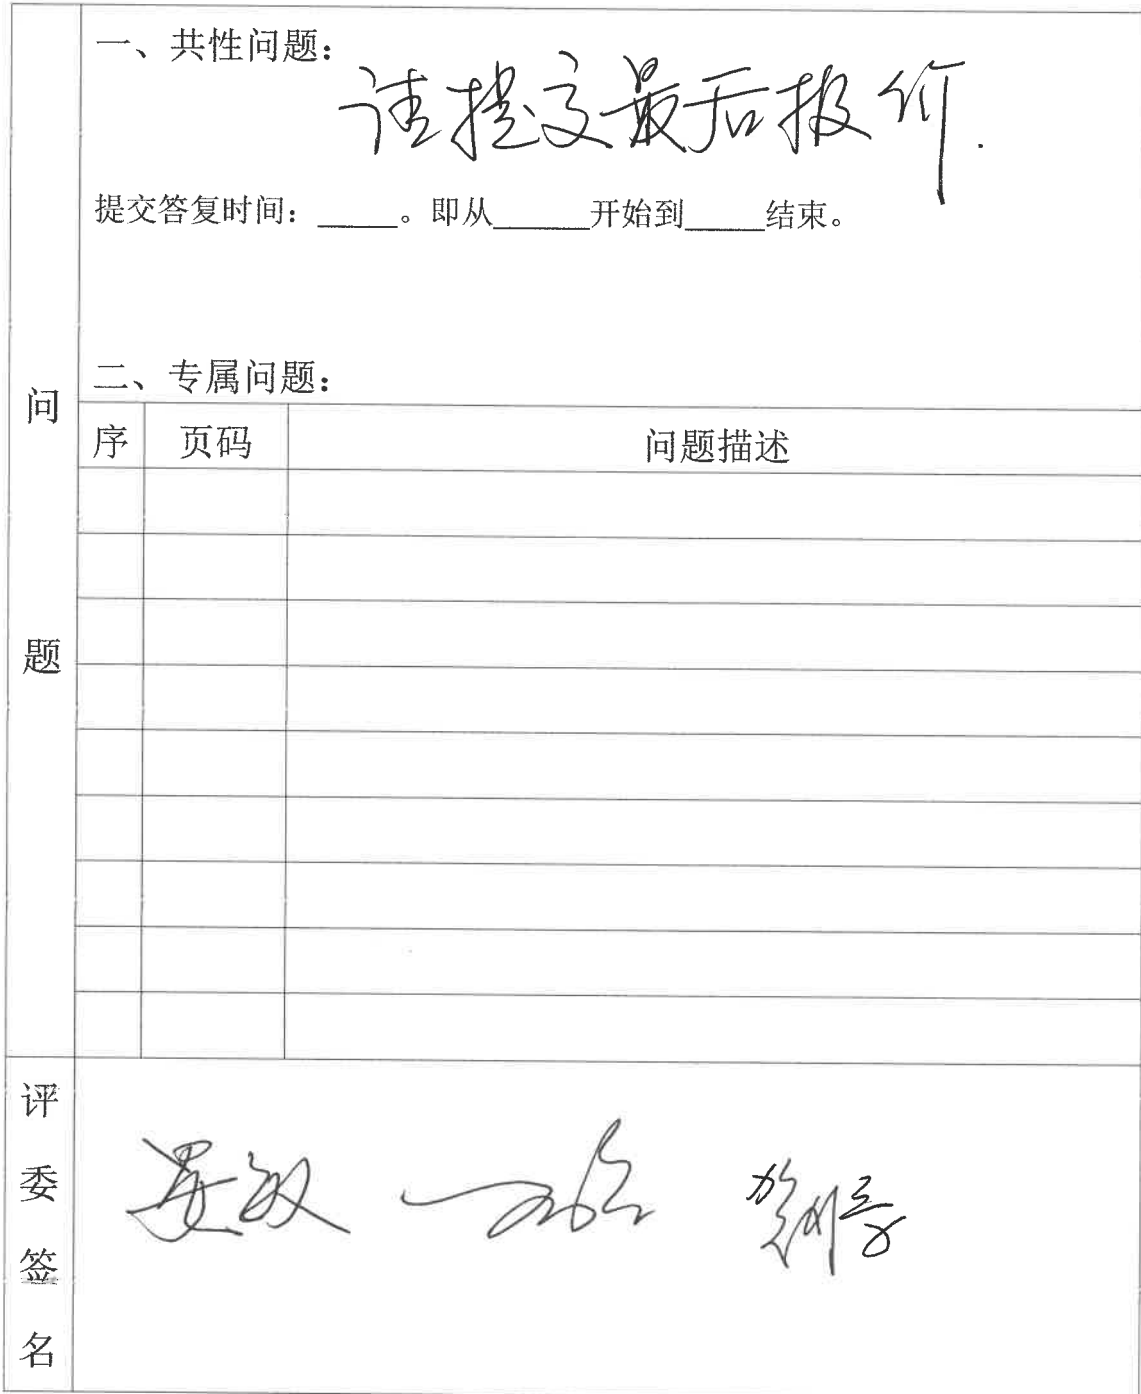 一、共性问题：
请提交最后报价.
提交答复时间：_____。即从______开始到_____结束。
二、专属问题：
问题
序 页码 问题描述
评委签名